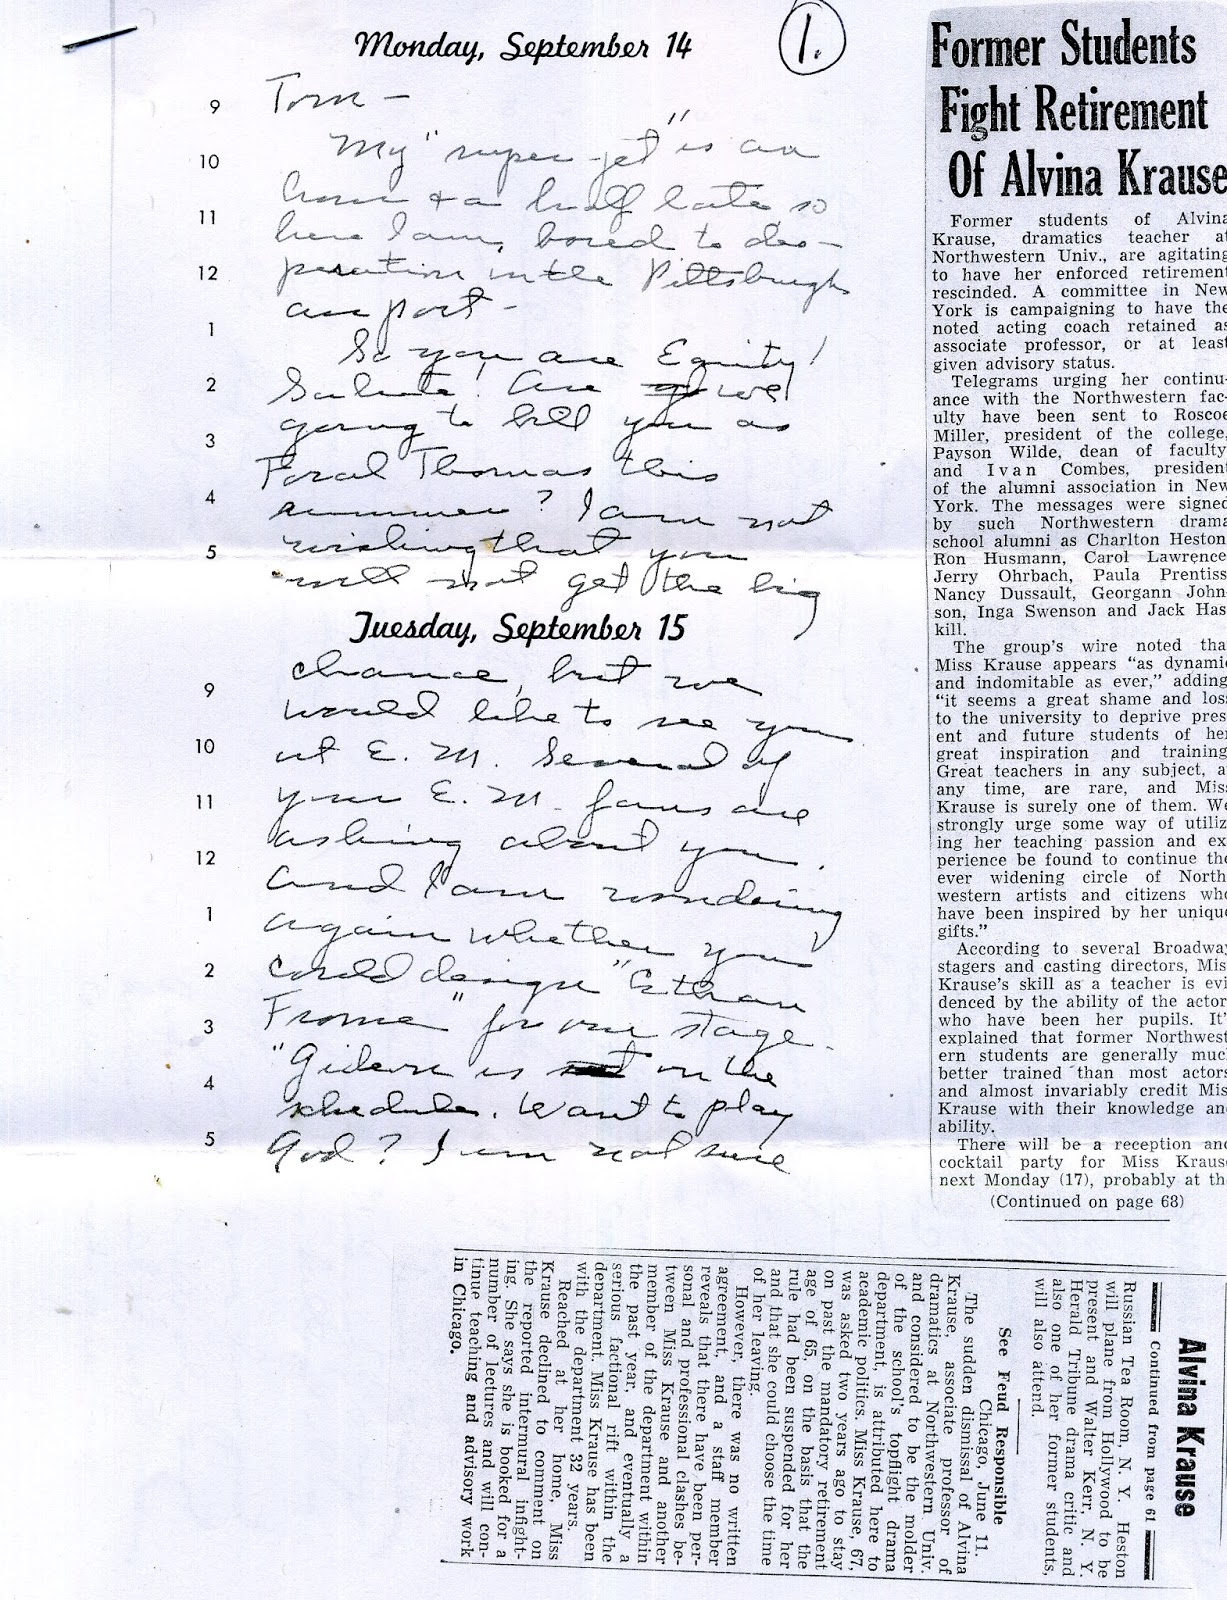 Monday, September 14
1.
9
10
11
12
1
2
3
4
5
Tom –
My "super-jet" is an
hour & a half late, so
here I am, bored to des-
peration in the Pittsburgh
air port –
So you are Equity!
Salute! Are we
going to bill you as
Foral Thomas this
summer? I am not
wishing that you
will not get the big
Tuesday, September 15
9
10
11
12
1
2
3
4
5
chance, but we
would like to see you
at E. M. Several of
your E. M. fans are
asking about you.
And I am wondering
again whether you
could design "Ethan
Frome" for our stage.
"Gideon is on the
schedule. Want to play
God? I am not sure
Former Students
Fight Retirement
Of Alvina Krause
Former students of Alvina
Krause, dramatics teacher at
Northwestern Univ., are agitating
to have her enforced retirement
rescinded. A committee in New
York is campaigning to have the
noted acting coach retained as
associate professor, or at least
given advisory status.
Telegrams urging her continu-
ance with the Northwestern fac-
ulty have been sent to Roscoe
Miller, president of the college,
Payson Wilde, dean of faculty,
and Ivan Combes, president
of the alumni association in New
York. The messages were signed
by such Northwestern drama
school alumni as Charlton Heston,
Ron Husmann, Carol Lawrence,
Jerry Ohrbach, Paula Prentiss,
Nancy Dussault, Georgann John-
son, Inga Swenson and Jack Has-
kill.
The group's wire noted tha
Miss Krause appears "as dynami
and indomitable as ever," adding
"it seems a great shame and los
to the university to deprive pres
ent and future students of he
great inspiration and training
Great teachers in any subject, a
any time, are rare, and Mis
Krause is surely one of them. We
strongly urge some way of utiliz
ing her teaching passion and ex
perience be found to continue the
ever widening circle of North
western artists and citizens who
have been inspired by her uniqu
gifts."
According to several Broadwa
stagers and casting directors, Mis
Krause's skill as a teacher is evi
denced by the ability of the actor
who have been her pupils. It'
explained that former Northwest
ern students are generally muc
better trained than most actors
and almost invariably credit Mis
Krause with their knowledge an
ability.
There will be a reception and
cocktail party for Miss Kraus
next Monday (17), probably at th
(Continued on page 68)
Alvina Krause
Continued from page 61
Russian Tea Room, N. Y. Heston
will plane from Hollywood to be
present and Walter Kerr, N. Y.
Herald Tribune drama critic and
also one of her former students,
will also attend.
See Feud Responsible
Chicago, June 11.
The sudden dismissal of Alvina
Krause, associate professor of
dramatics at Northwestern Univ.
and considered to be the molder
of the school's topflight drama
department, is attributed here to
academic politics. Miss Krause, 67,
was asked two years ago to stay
on past the mandatory retirement
age of 65, on the basis that the
rule had been suspended for her
and that she could choose the time
of her leaving.
However, there was no written
agreement, and a staff member
reveals that there have been per-
sonal and professional clashes be-
tween Miss Krause and another
member of the department within
the past year, and eventually a
serious factional rift within the
department. Miss Krause has been
with the department 32 years.
Reached at her home, Miss
Krause declined to comment on
the reported intermural infight-
ing. She says she is booked for a
number of lectures and will con-
tinue teaching and advisory work
in Chicago.